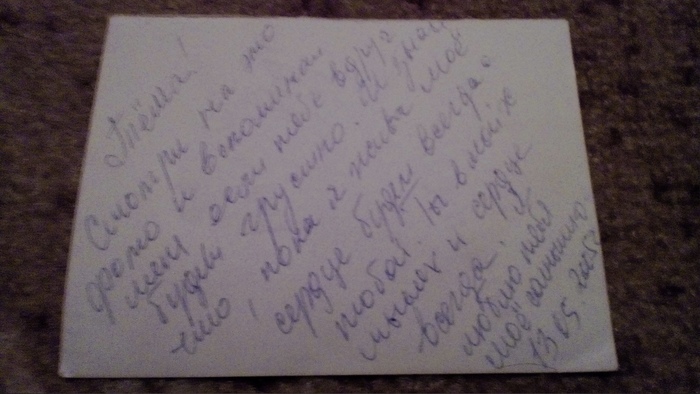 Тёма!
Смотри на это
фото и вспоминай
меня если тебе вдруг
будет грустно. И знай
что, пока я жива моё
сердце будет всегда с
тобой. Ты в моих
мыслях и сердце
всегда. Я
люблю тебя
моё солнышко
13.05.2005г